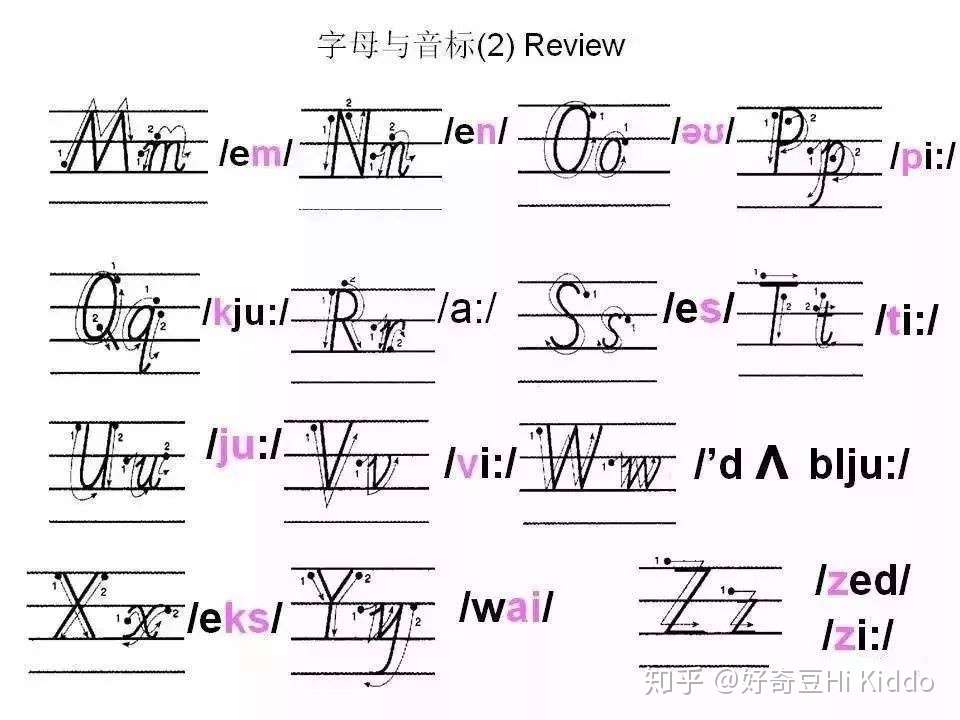 字母与音标(2) Review
Mm /em/ Nn /en/ Oo /əʊ/ Pp /pi:/
Qq /kju:/ Rr /a:/ Ss /es/ Tt /ti:/
Uu /ju:/ Vv /vi:/ Ww /’d Λ blju:/
Xx /eks/ Yy /wai/ Zz /zed/
/zi:/
知乎 @好奇豆Hi Kiddo